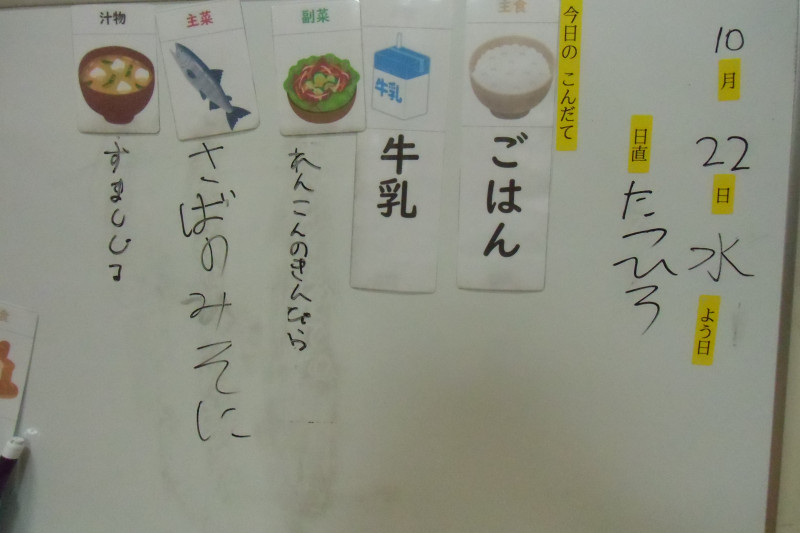 10月22日水よう日
日直たつひろ
今日の こんだて
主食
ごはん
牛乳
牛乳
副菜
れんこんのきんぴら
主菜
さばのみそに
汁物
すましじる